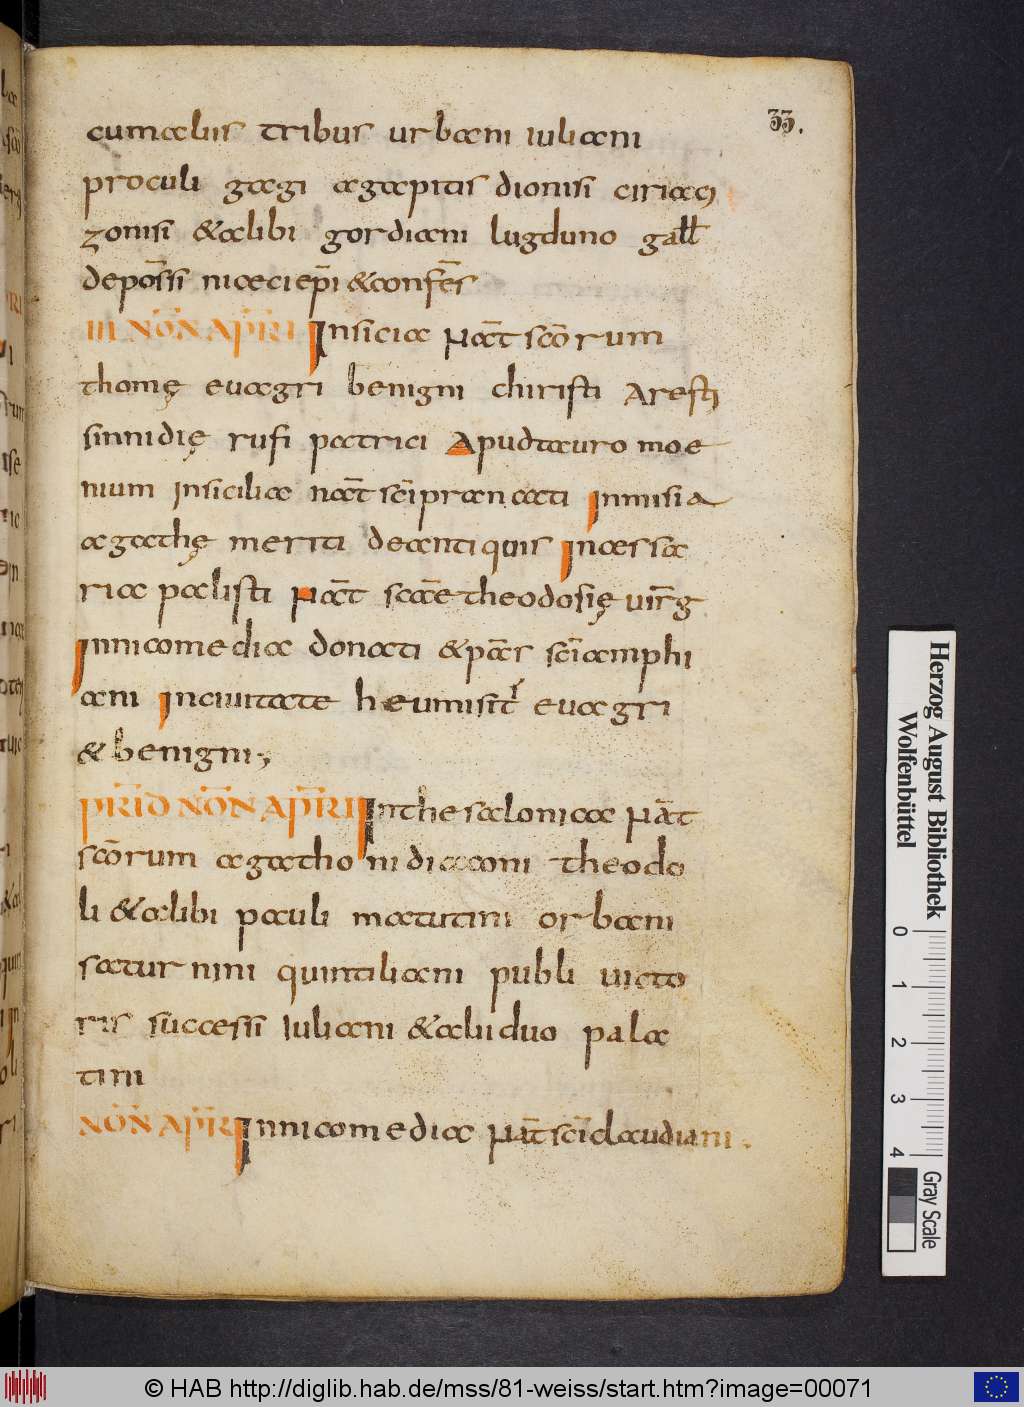 33.
cum aliis tribus urbani iuliani
proculi gagi agapitis dionisi ciriaci
zonisi & alibi gordiani lugduno gall
depossi niaeci epi & confes
III NON APRI In sicia nat scorum
thome euagri benigni christi Aresti
sinnidię rufi patrici Apud tauro moe
nium in sicilia nat sci prancati in misia
agathę meriti deanti quis in caessa
ria palisti nat scae theodosię uirg
In nicomedia donati & pacr sci amphi
ani In ciuitate heumisit euagri
& benigni;
PRID NON APRI In thesalonica nat
scorum agathoni diaconi theodo
li & alibi pauli matutini orbani
saturnini quintiliani publi uicto
ris successi iuliani & alii duo pala
tini
NON APRI In nicomedia nat sci claudiani.
Herzog August Bibliothek
Wolfenbüttel
0 1 2 3 4
Gray Scale
© HAB http://diglib.hab.de/mss/81-weiss/start.htm?image=00071